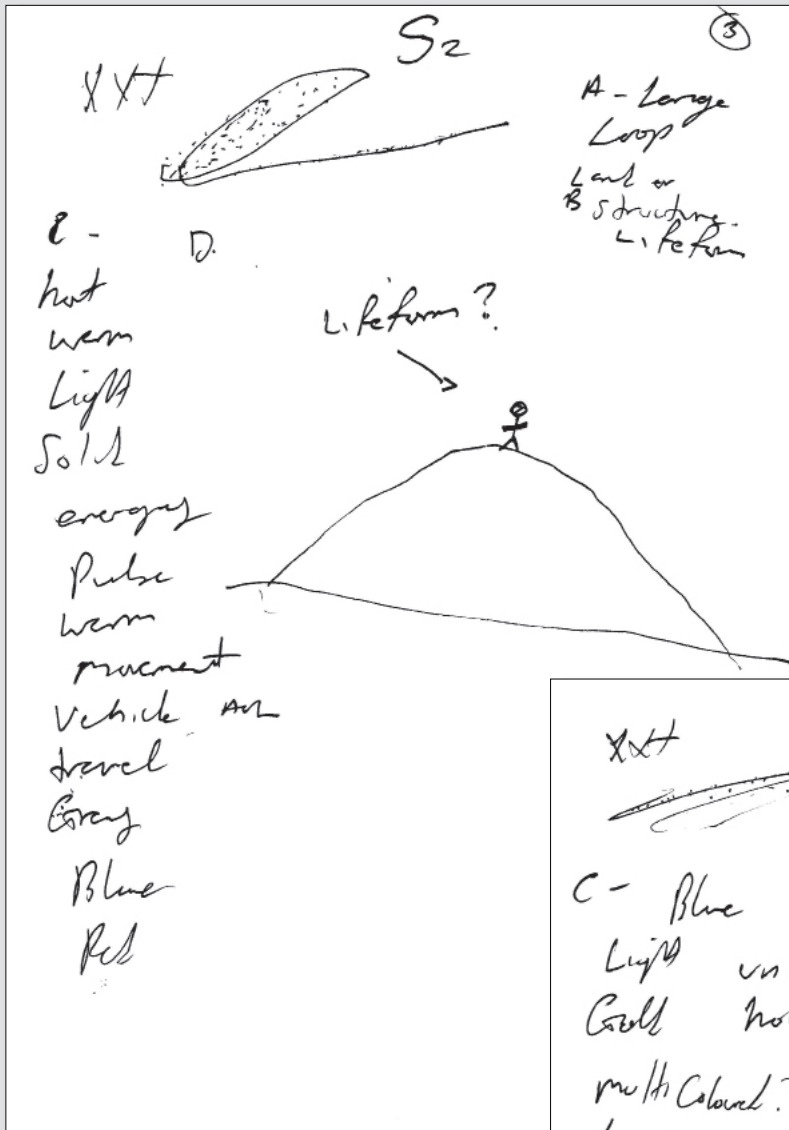 S2
3
XXH
A - Large
Loop
Land or
B Structure.
Lifeform
C -
D.
hot
warm
Light
Solid
energy
Pulse
warm
movement
Vehicle
travel
Grey
Blue
Red
Lifeform?
XXH
C - Blue
Light
Gold
multi Coloured?